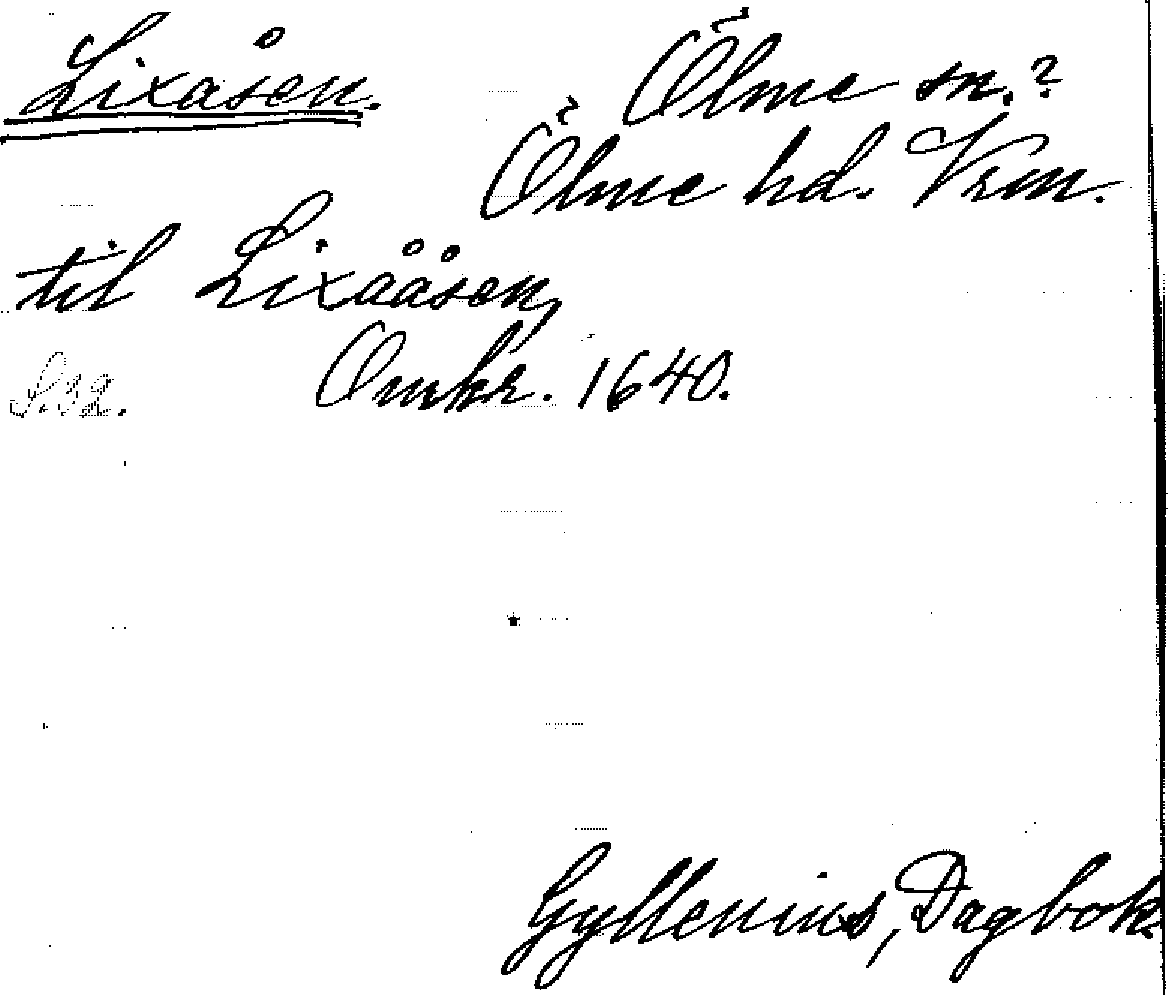 Lixåsen. Ölme sn.?
Ölme hd. Vrm.
til Lixååsen,
S. 32. Omkr. 1640.
Gyllenius, Dagbok.